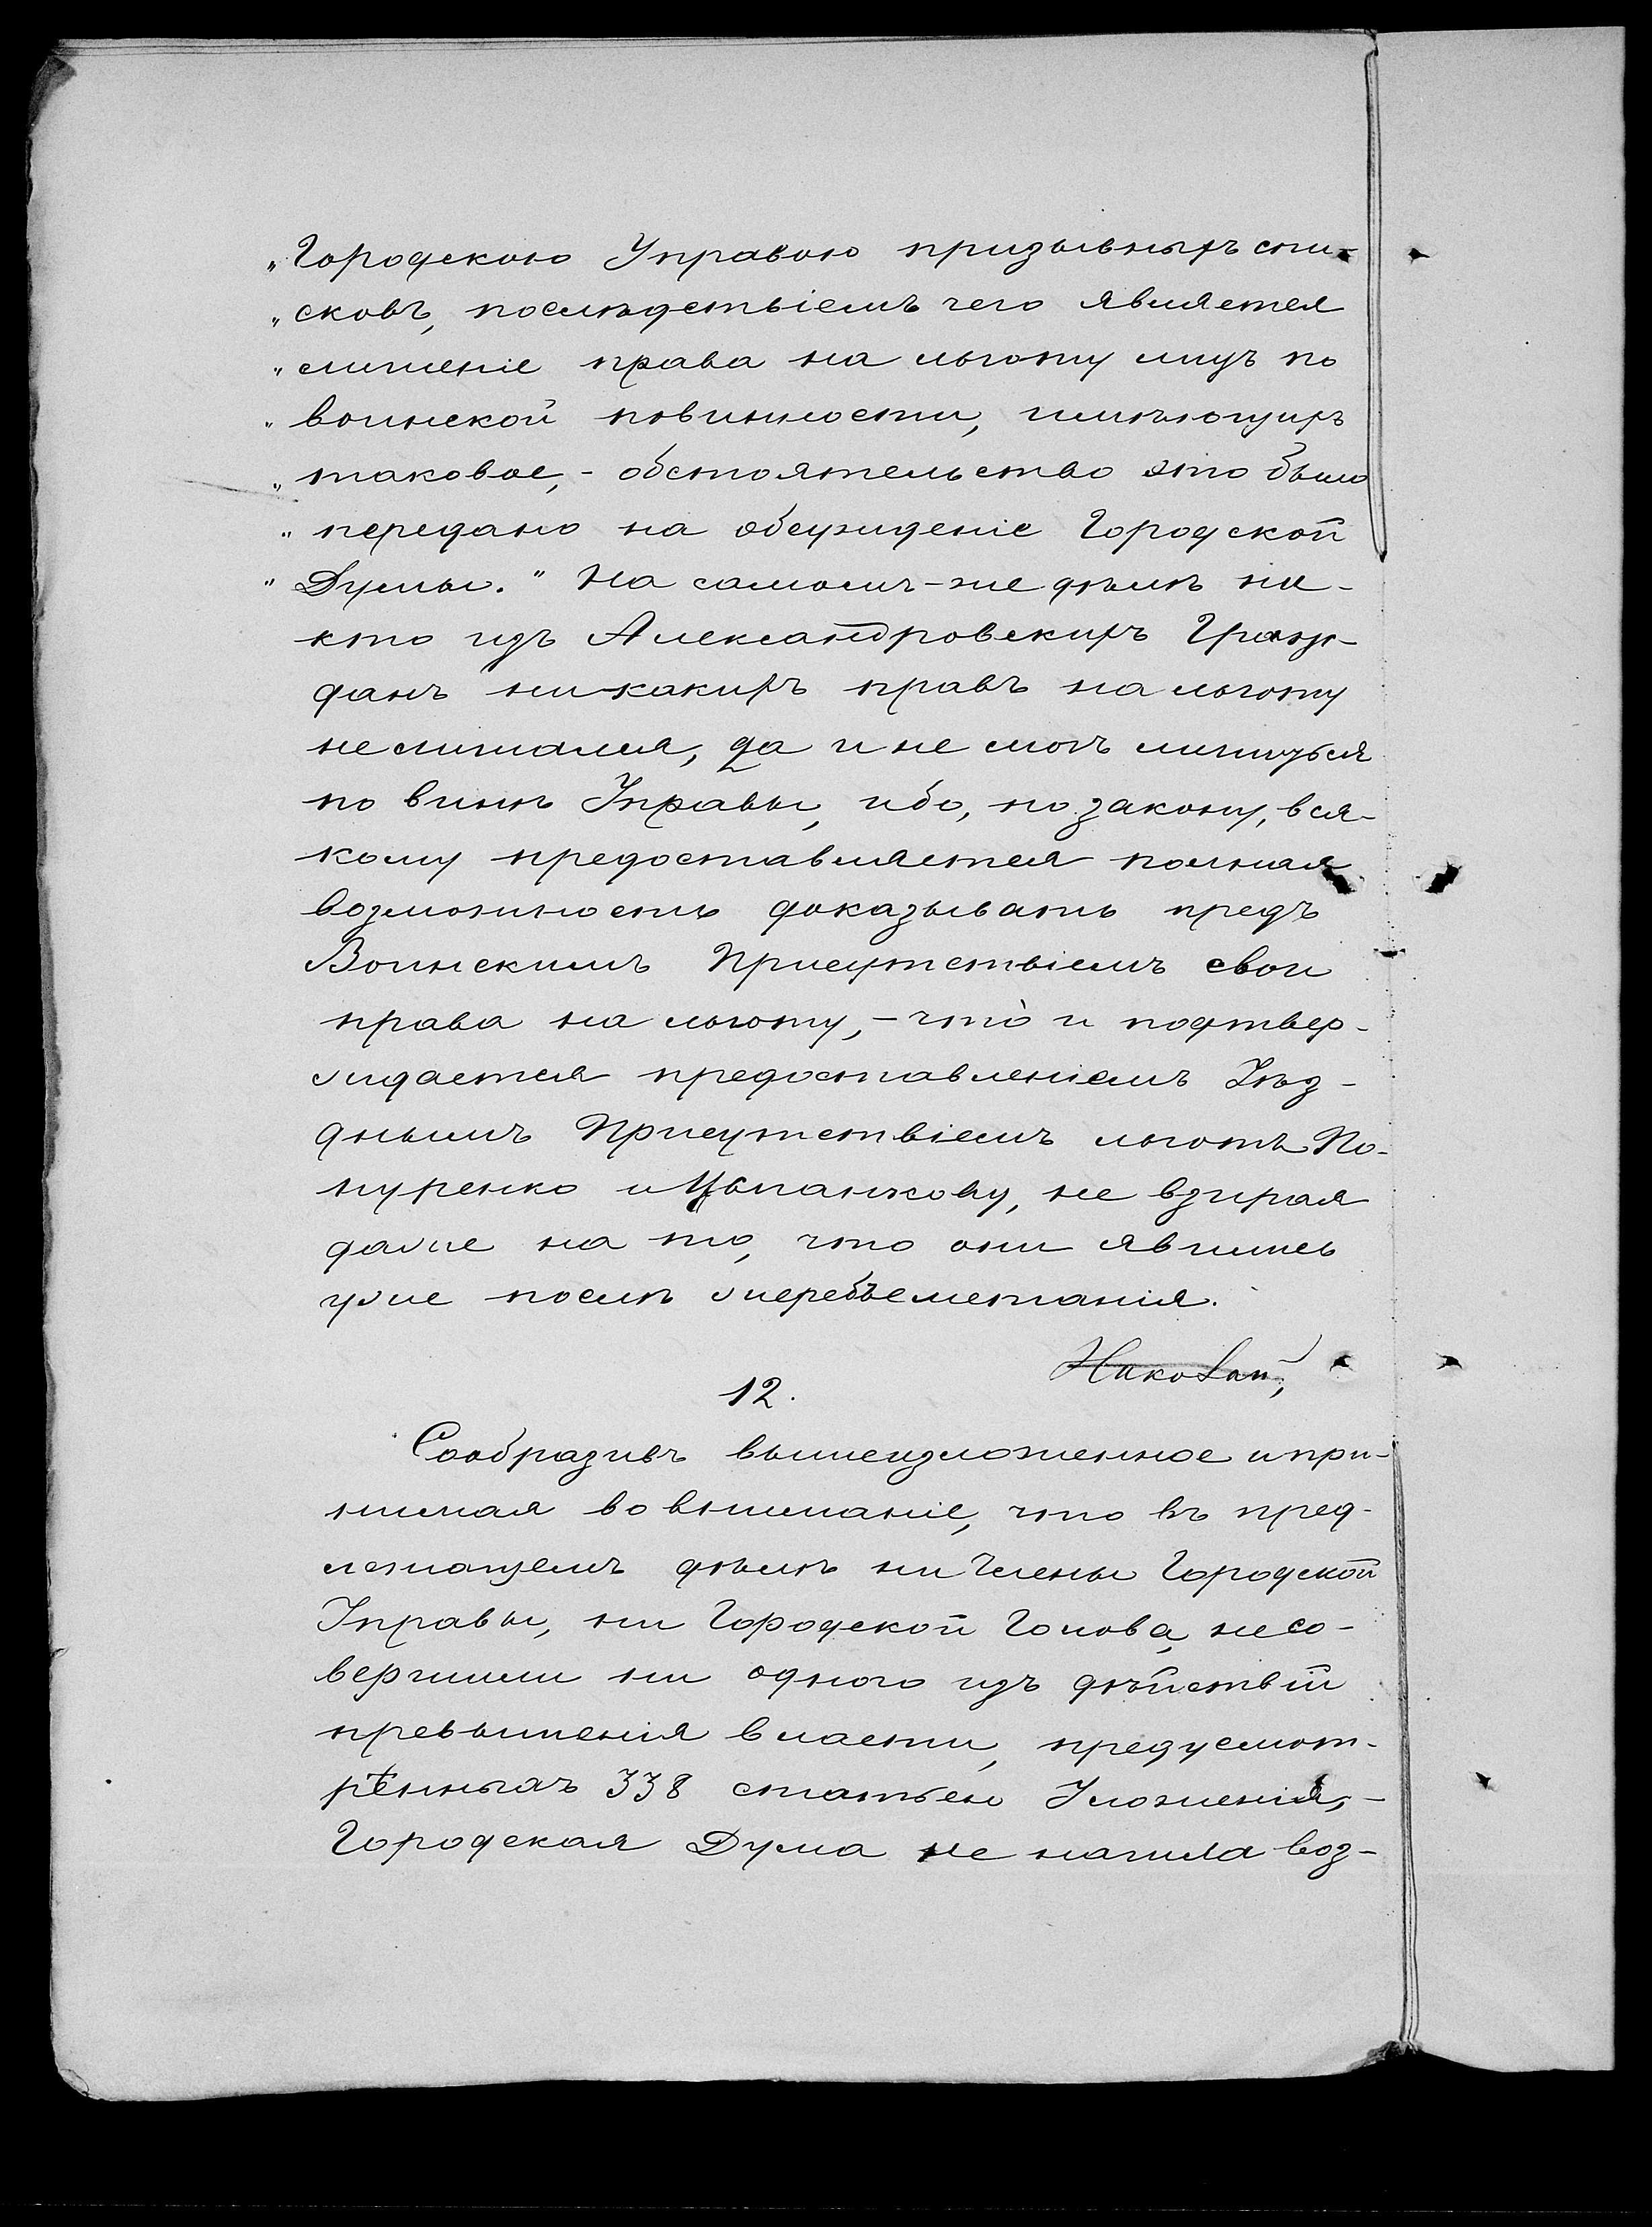 „Городскою Управою призывныхъ спи-
„сковъ, послѣдствіемъ чего является
„лишеніе права на льготу лицъ по
„воинской повинности, имѣющихъ
„таковое,- обстоятельство это было
„передано на обсужденіе Городской
„Думы." На самомъ-же дѣлѣ ни-
кто изъ Александровскихъ Граж-
данъ ни какихъ правъ на льготу
не лишался, да и не могъ лишиться
по винѣ Управы, ибо, по закону, вся-
кому предоставляется полная
возможность доказывать предъ
Воинскимъ Присутствіемъ свои
права на льготу,- что̀ и подтвер-
ждается предоставленіемъ Уѣз-
днымъ Присутствіемъ льготъ По-
нуренко и Цыпанкову, не взирая
даже на то, что они явились
уже послѣ жеребьеметанія.
12.
Сообразивъ вышеизложенное и при-
нимая во вниманіе, что въ пред-
лежащемъ дѣлѣ ни Члены Городской
Управы, ни Городской Голова, не со-
вершили ни одного изъ дѣйствій
превышенія власти, предусмот-
рѣнныхъ 338 статьею Уложенія,-
Городская Дума не нашла воз-